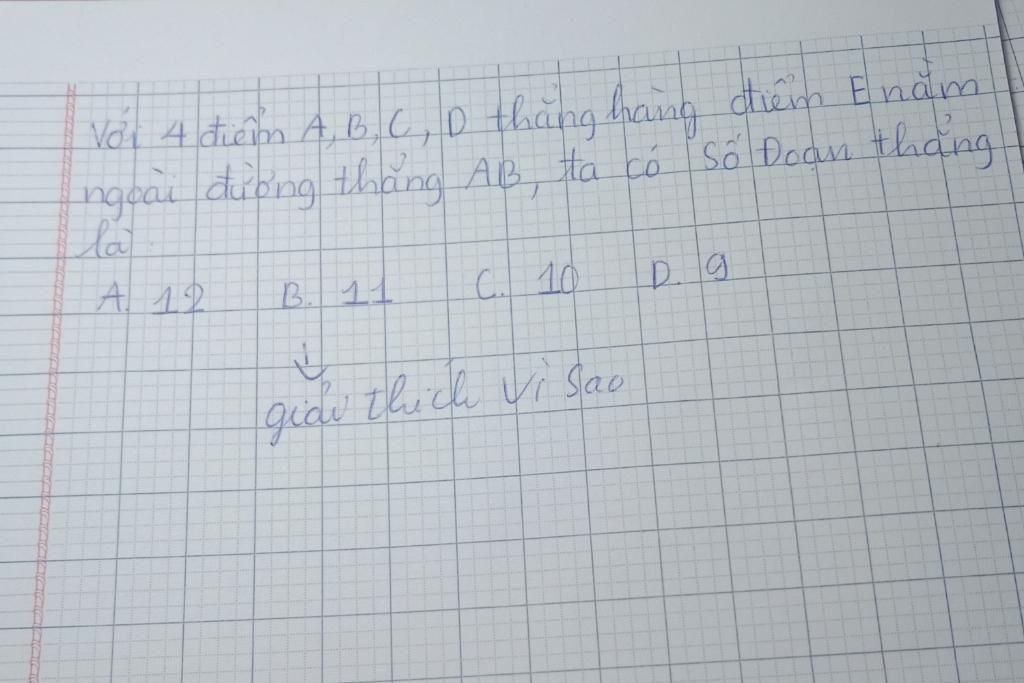 Với 4 điểm A, B, C, D thẳng hàng điểm E nằm
ngoài đường thẳng AB, ta có số Đoạn thẳng
là
A. 12 B. 11 C. 10 D. 9
giải thích Vì Sao